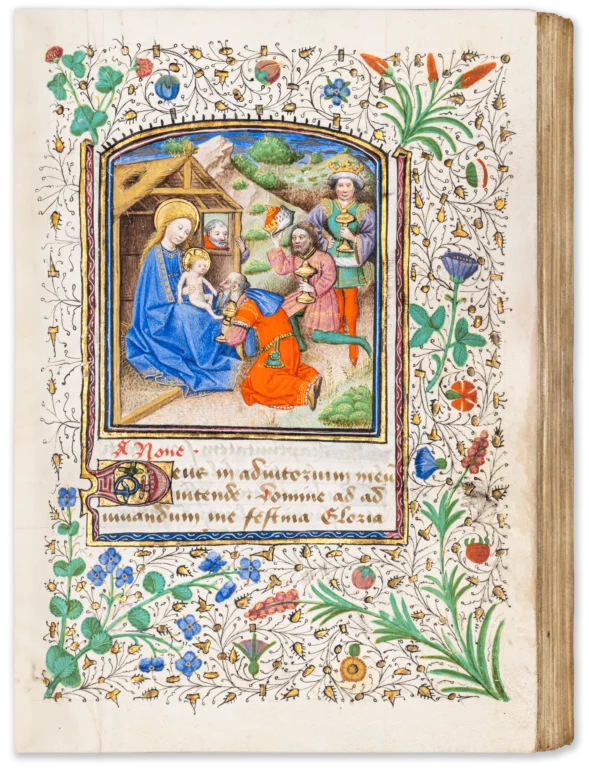 A None.
Deus in adiutorium meū
intende. Domine ad ad
iuuandum me festina Gloria